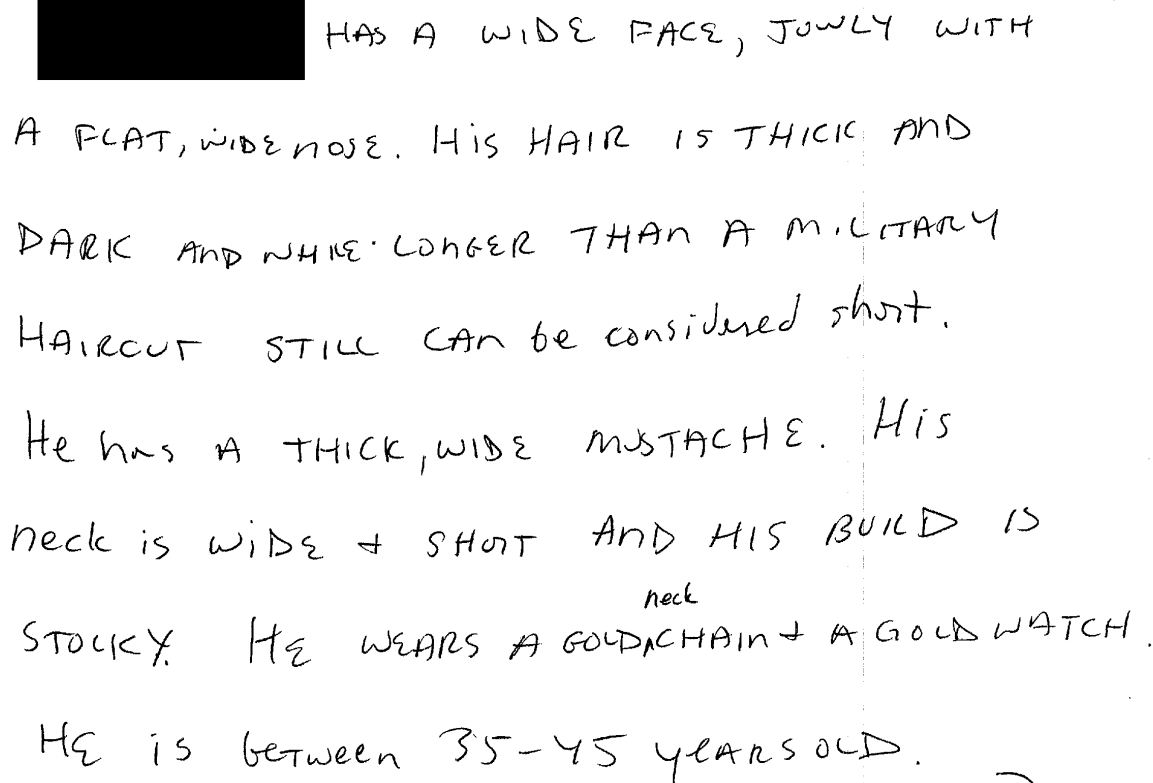 HAS A WIDE FACE, JOWLY WITH
A FLAT, WIDE NOSE. HIS HAIR IS THICK AND
DARK AND WHILE LONGER THAN A MILITARY
HAIRCUT STILL CAN be considered short.
He has A THICK, WIDE MUSTACHE. His
neck is WIDE + SHORT AND HIS BUILD IS
STOCKY. HE WEARS A GOLD neck CHAIN + A GOLD WATCH.
HE is between 35-45 years OLD.